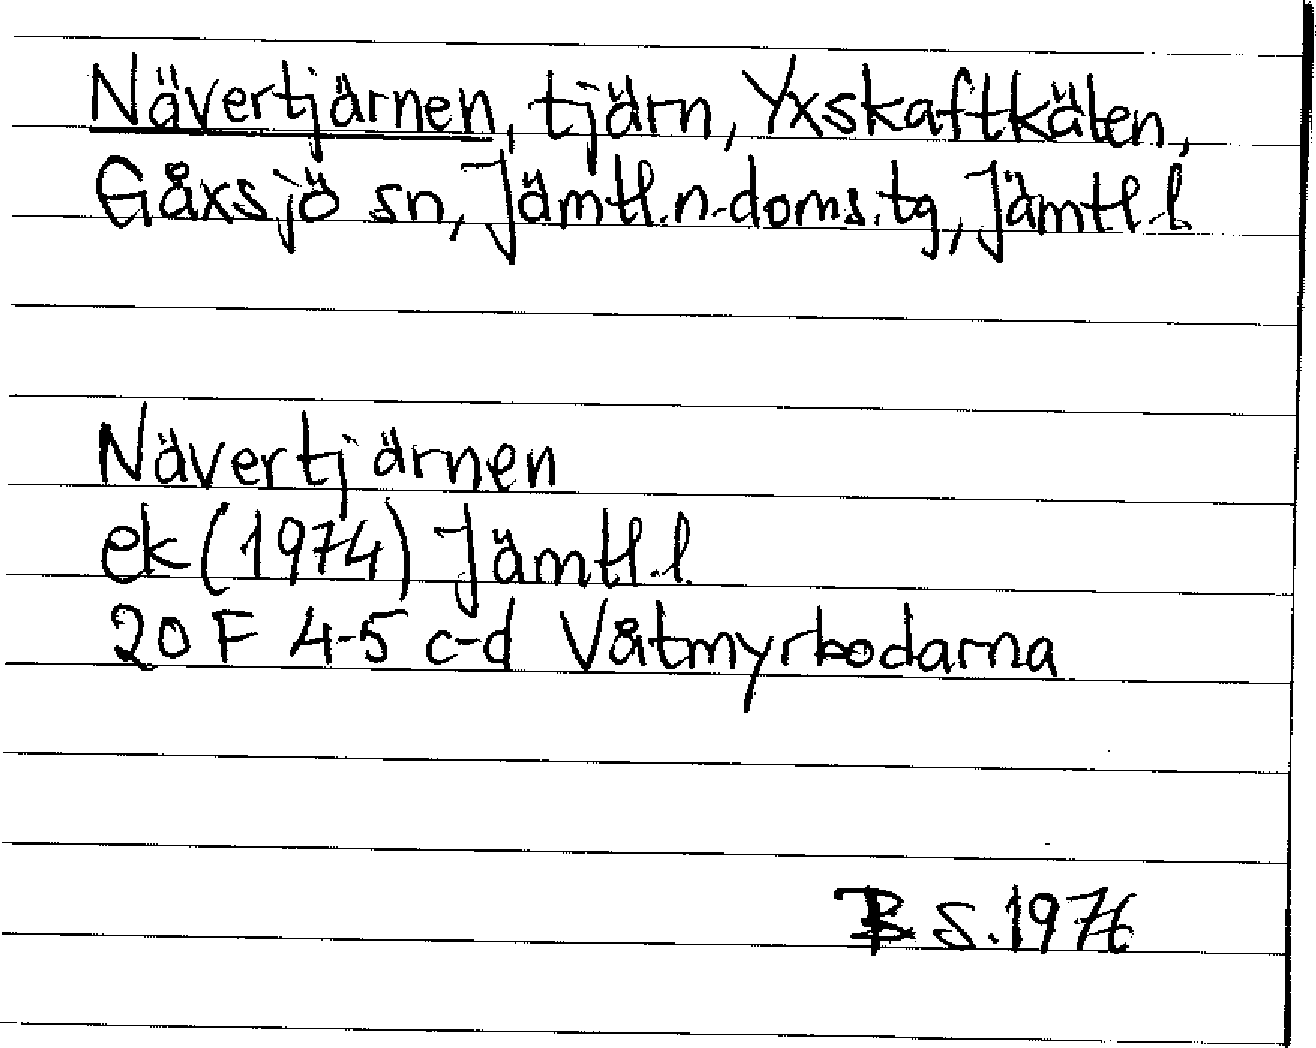 Nävertjärnen, tjärn, Yxskaftkälen,
Gåxsjö sn, Jämtl.n.doms.tg, Jämtl.l
Nävertjärnen
ek (1974) Jämtl.l.
20 F 4-5 c-d Våtmyrbodarna
S. 1976